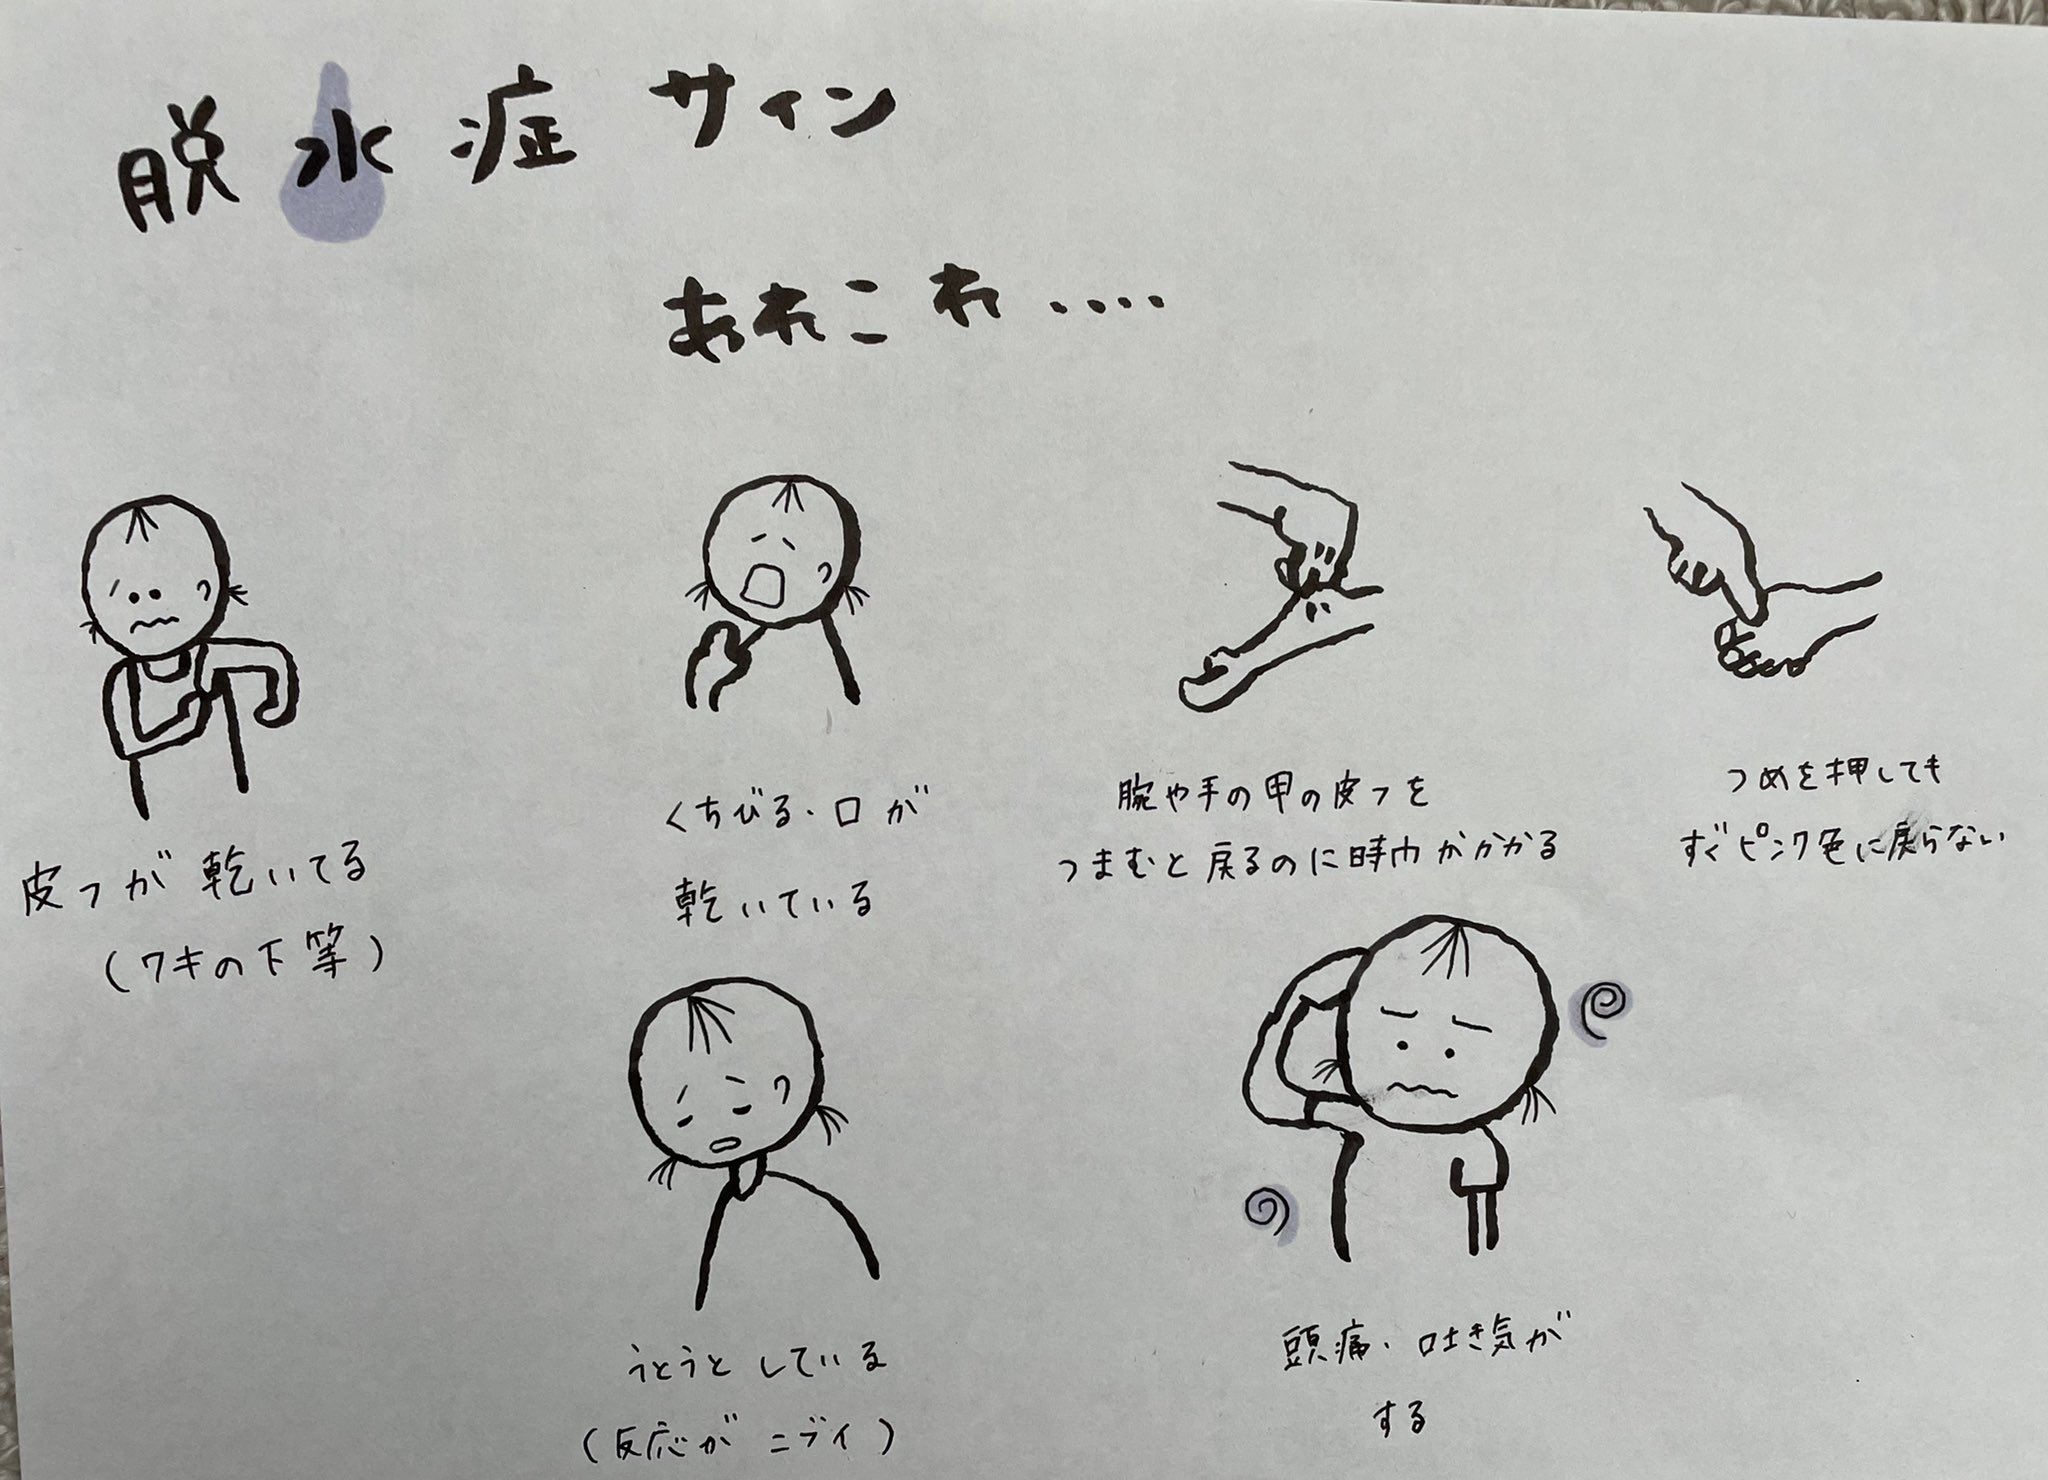 脱水症サイン
あれこれ....
皮フが乾いてる
(ワキの下等)
くちびる・口が
乾いている
腕や手の甲の皮フを
つまむと戻るのに時巾がかかる
つめを押しても
すぐピンク色に戻らない
うとうとしている
(反応がニブイ)
頭痛・吐き気が
する